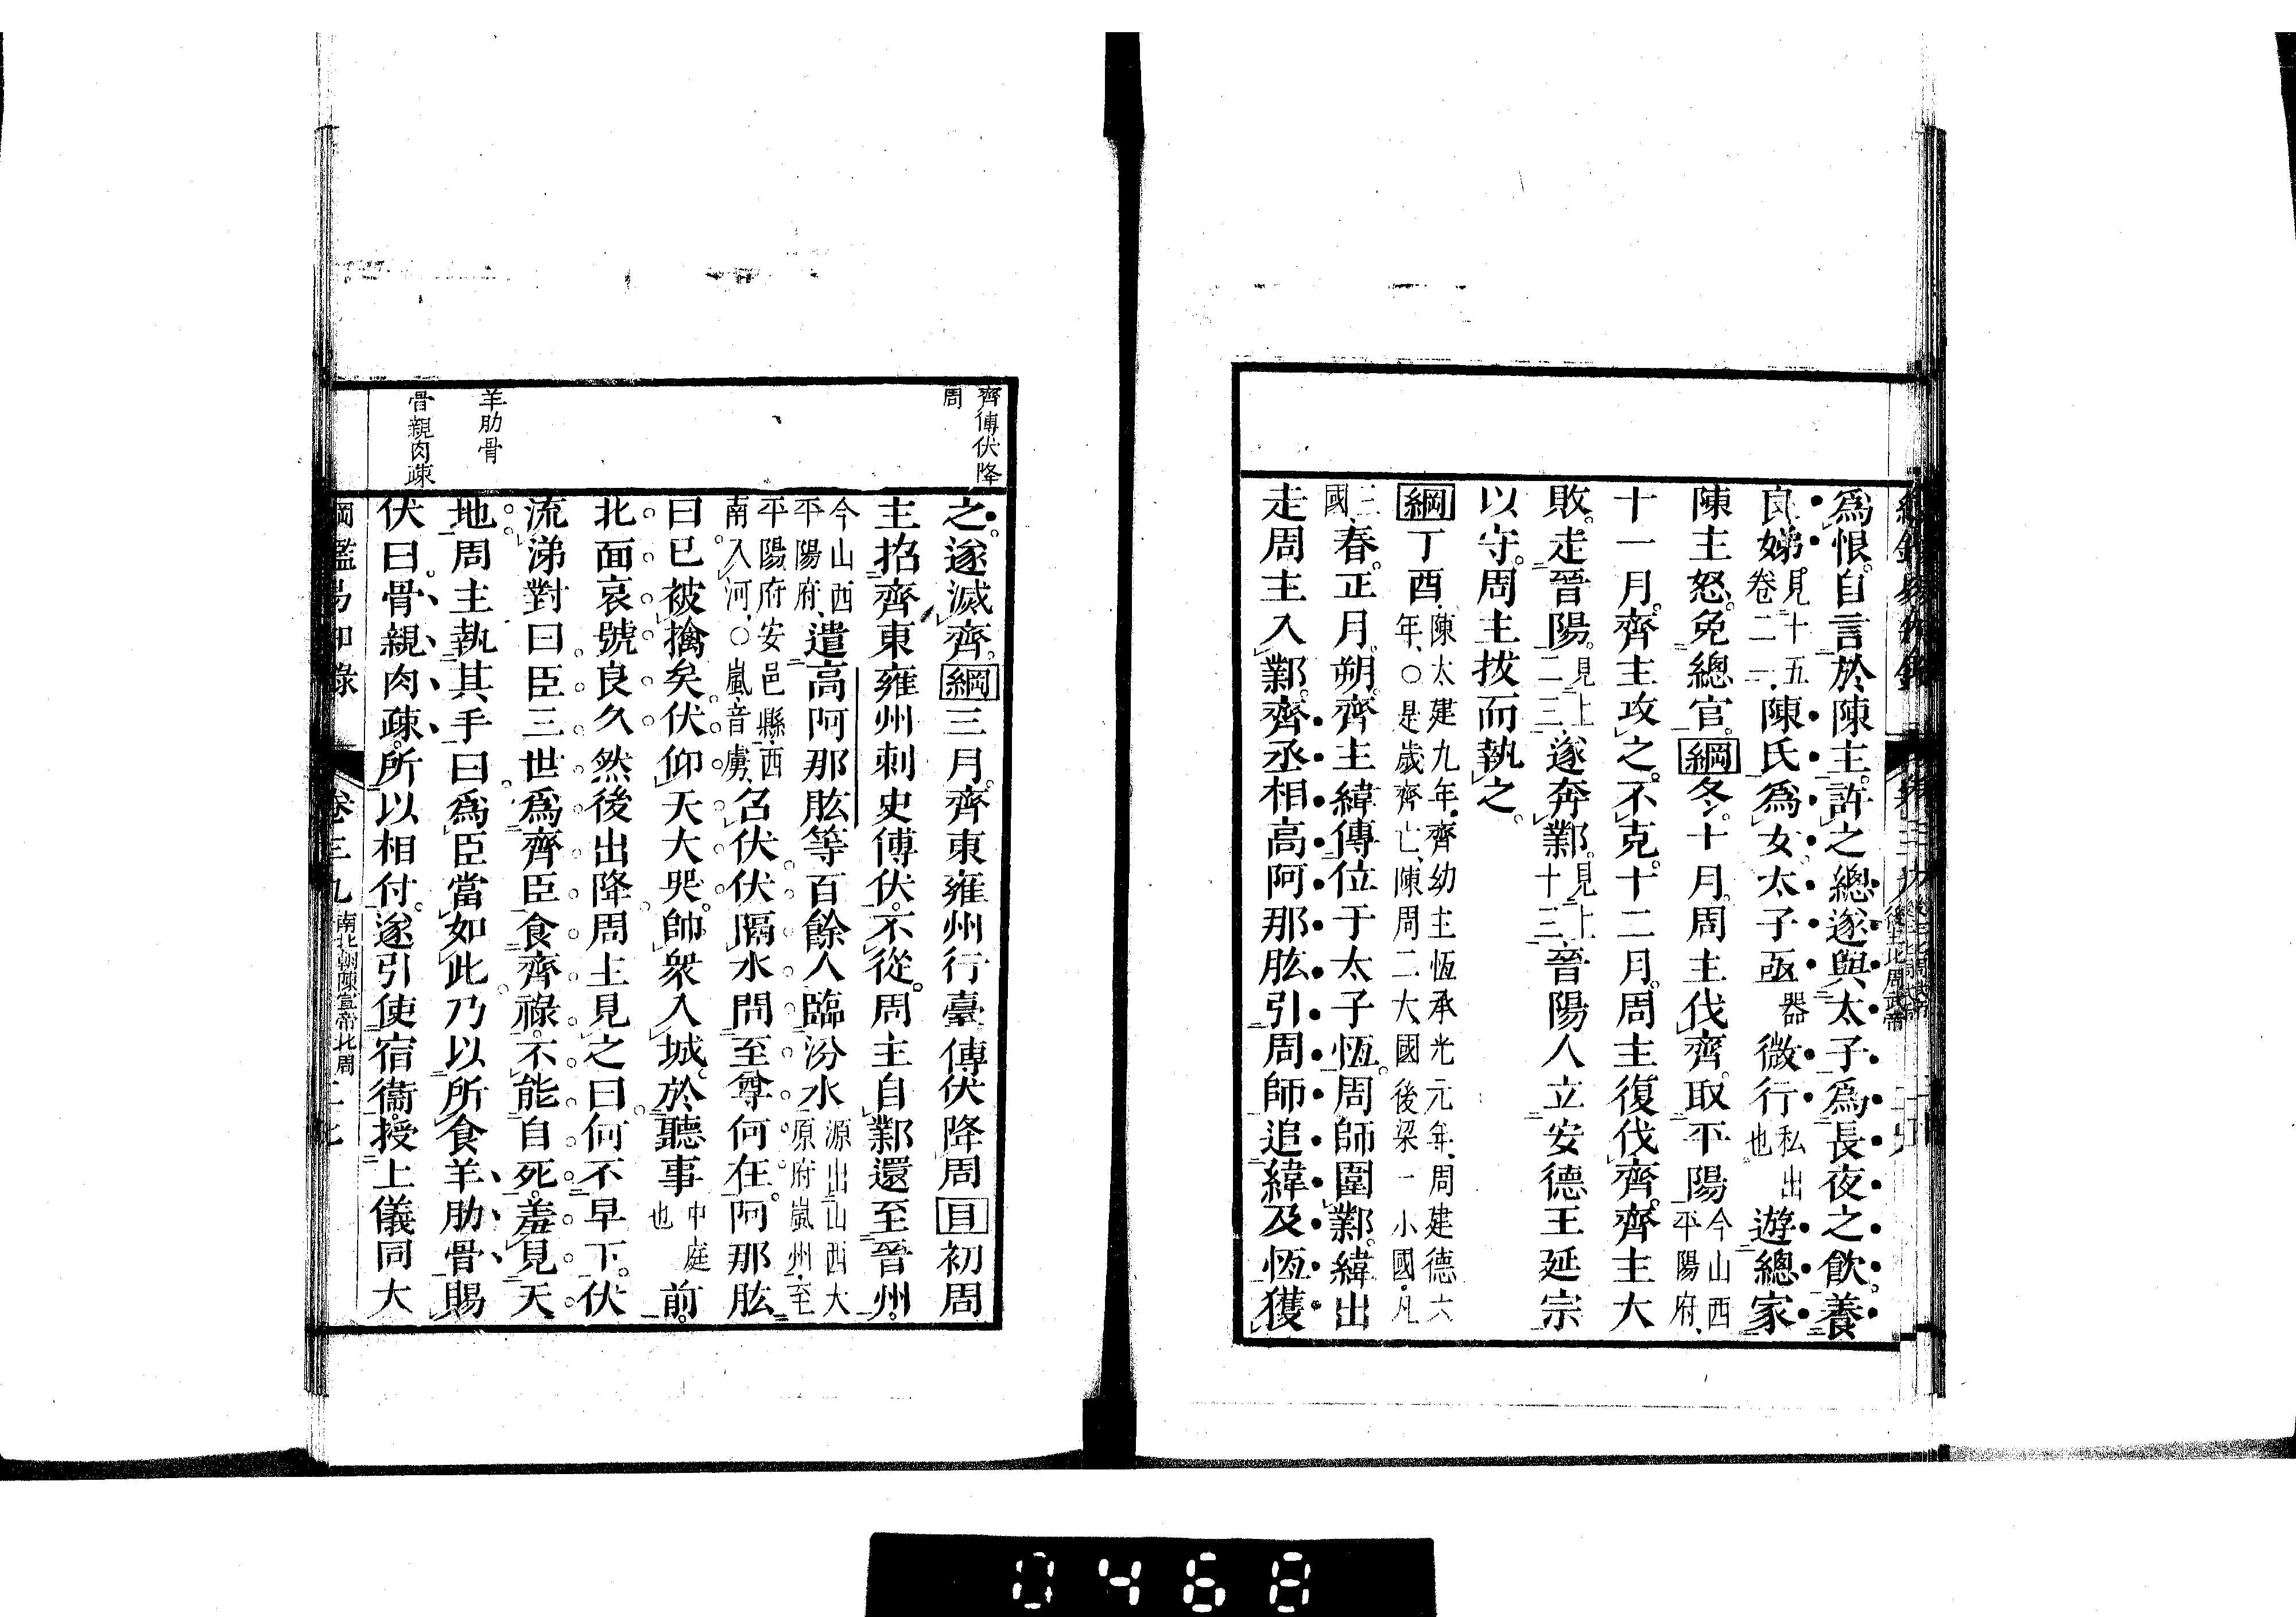 爲恨。自言於陳主。許之總遂與太子爲長夜之飮。養
良娣。見十五卷二一、陳氏爲女太子亟器微行私出也遊總家
陳主怒。免總官。綱冬。十月。周主伐齊。取平陽今山西平陽府、
十一月。齊主攻之。不克。十二月。周主復伐齊。齊主大
敗。走晉陽。見上二三、遂奔鄴。見上十三晉陽人立安德王延宗
以守。周主拔而執之。
綱丁酉、陳太建九年、齊幼主恆承光元年、周建德六年、○是歲齊亡、陳周二大國後梁一小國、凡
三國、春。正月。朔。齊主緯傳位于太子恆。周師圍鄴。緯出
走周主入鄴。齊丞相高阿那肱引周師追緯及恆獲
齊傅伏降周
之。遂滅齊。綱三月。齊東雍州行臺傅伏降周目初周
主招齊東雍州刺史傅伏。不從。周主自鄴還至晉州。
今山西平陽府、遣高阿那肱等百餘人臨汾水源出山西大原府嵐州、至
平陽府安邑縣、西南入河、○嵐、音虜、召伏伏隔水問至尊何在。阿那肱
曰已被擒矣。伏仰天大哭。帥衆入城。於聽事中庭也前。
北面哀號良久然後出降周主見之曰何不早下。伏
流涕對曰臣三世爲齊臣食齊祿。不能自死。羞見天
羊肋骨
地。周主執其手曰。爲臣當如此。乃以所食羊肋骨賜
骨親肉疎
伏曰。骨親肉疎。所以相付。遂引使宿衞。授上儀同大
綱鑑易知錄
卷三九
南北朝陳宣帝北周
0468